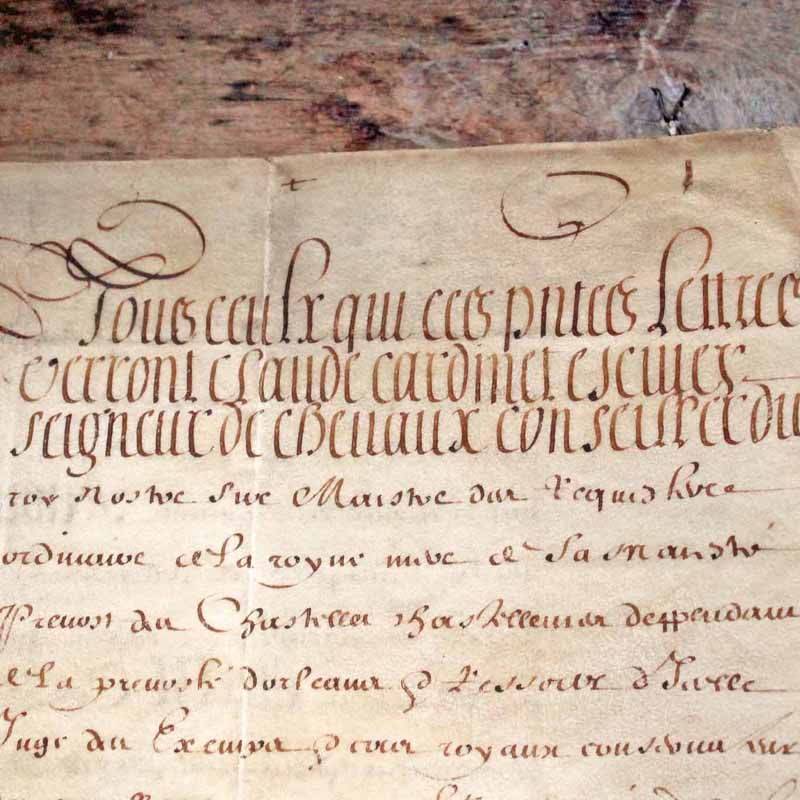 Tous ceulx qui ces pntes lettres
verront claude cardinet escuier
seigneur de chevaux conseiller du
roy nostre Sire Maistre des Requestes
ordinaire de la royne mere de Sa Maiesté
Prevost du Chastellet chastellenies deppendans
de la prevosté dorleans & Ressort d'Icelle
Juge des Exempz & cas royaux